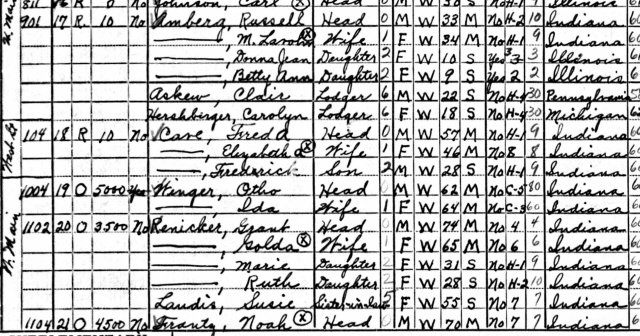 811 16 R 0 No Johnson, Carl Ⓧ Head 0 M W 30 S No H-1 9 Illinois 6
901 17 R 10 No Amberg, Russell Head 0 M W 33 M No H-2 10 Indiana
——, M. Ⓧ Wife 1 F W 34 M No H-1 9 Indiana 6
——, Donna Jean Daughter 2 F W 10 S Yes 3 3 Illinois 6
——, Betty Ann Daughter 2 F W 9 S Yes 2 2 Illinois 6
Askew, Clair Lodger 6 M W 22 S No H-4 30 Pennsylvania 5
Hershberger, Carolyn Lodger 6 F W 18 S No H-4 30 Michigan 6
104 18 R 10 No Cave, Fred A Head 0 M W 57 M No H-1 9 Indiana
——, Elizabeth Ⓧ Wife 1 F W 46 M No 8 8 Indiana 6
——, Frederick Son 2 M W 28 S No H-1 9 Indiana 6
1004 19 O 5000 Yes Winger, Otho Head 0 M W 62 M No C-5 80 Indiana 6
——, Ida Wife 1 F W 64 M No C-3 60 Indiana 6
1102 20 O 3500 No Renicker, Grant Head 0 M W 74 M No 4 4 Indiana 6
——, Golda Ⓧ Wife 1 F W 65 M No 6 6 Indiana 6
——, Marie Daughter 2 F W 31 S No H-1 9 Indiana 6
——, Ruth Daughter 2 F W 28 S No H-2 10 Indiana 6
Landis, Susie Sister-in-law 2 F W 55 S No 7 7 Indiana 6
1104 21 O 4500 No Frantz, Noah Ⓧ Head 0 M W 70 M No 7 7 Indiana 6
W. Main